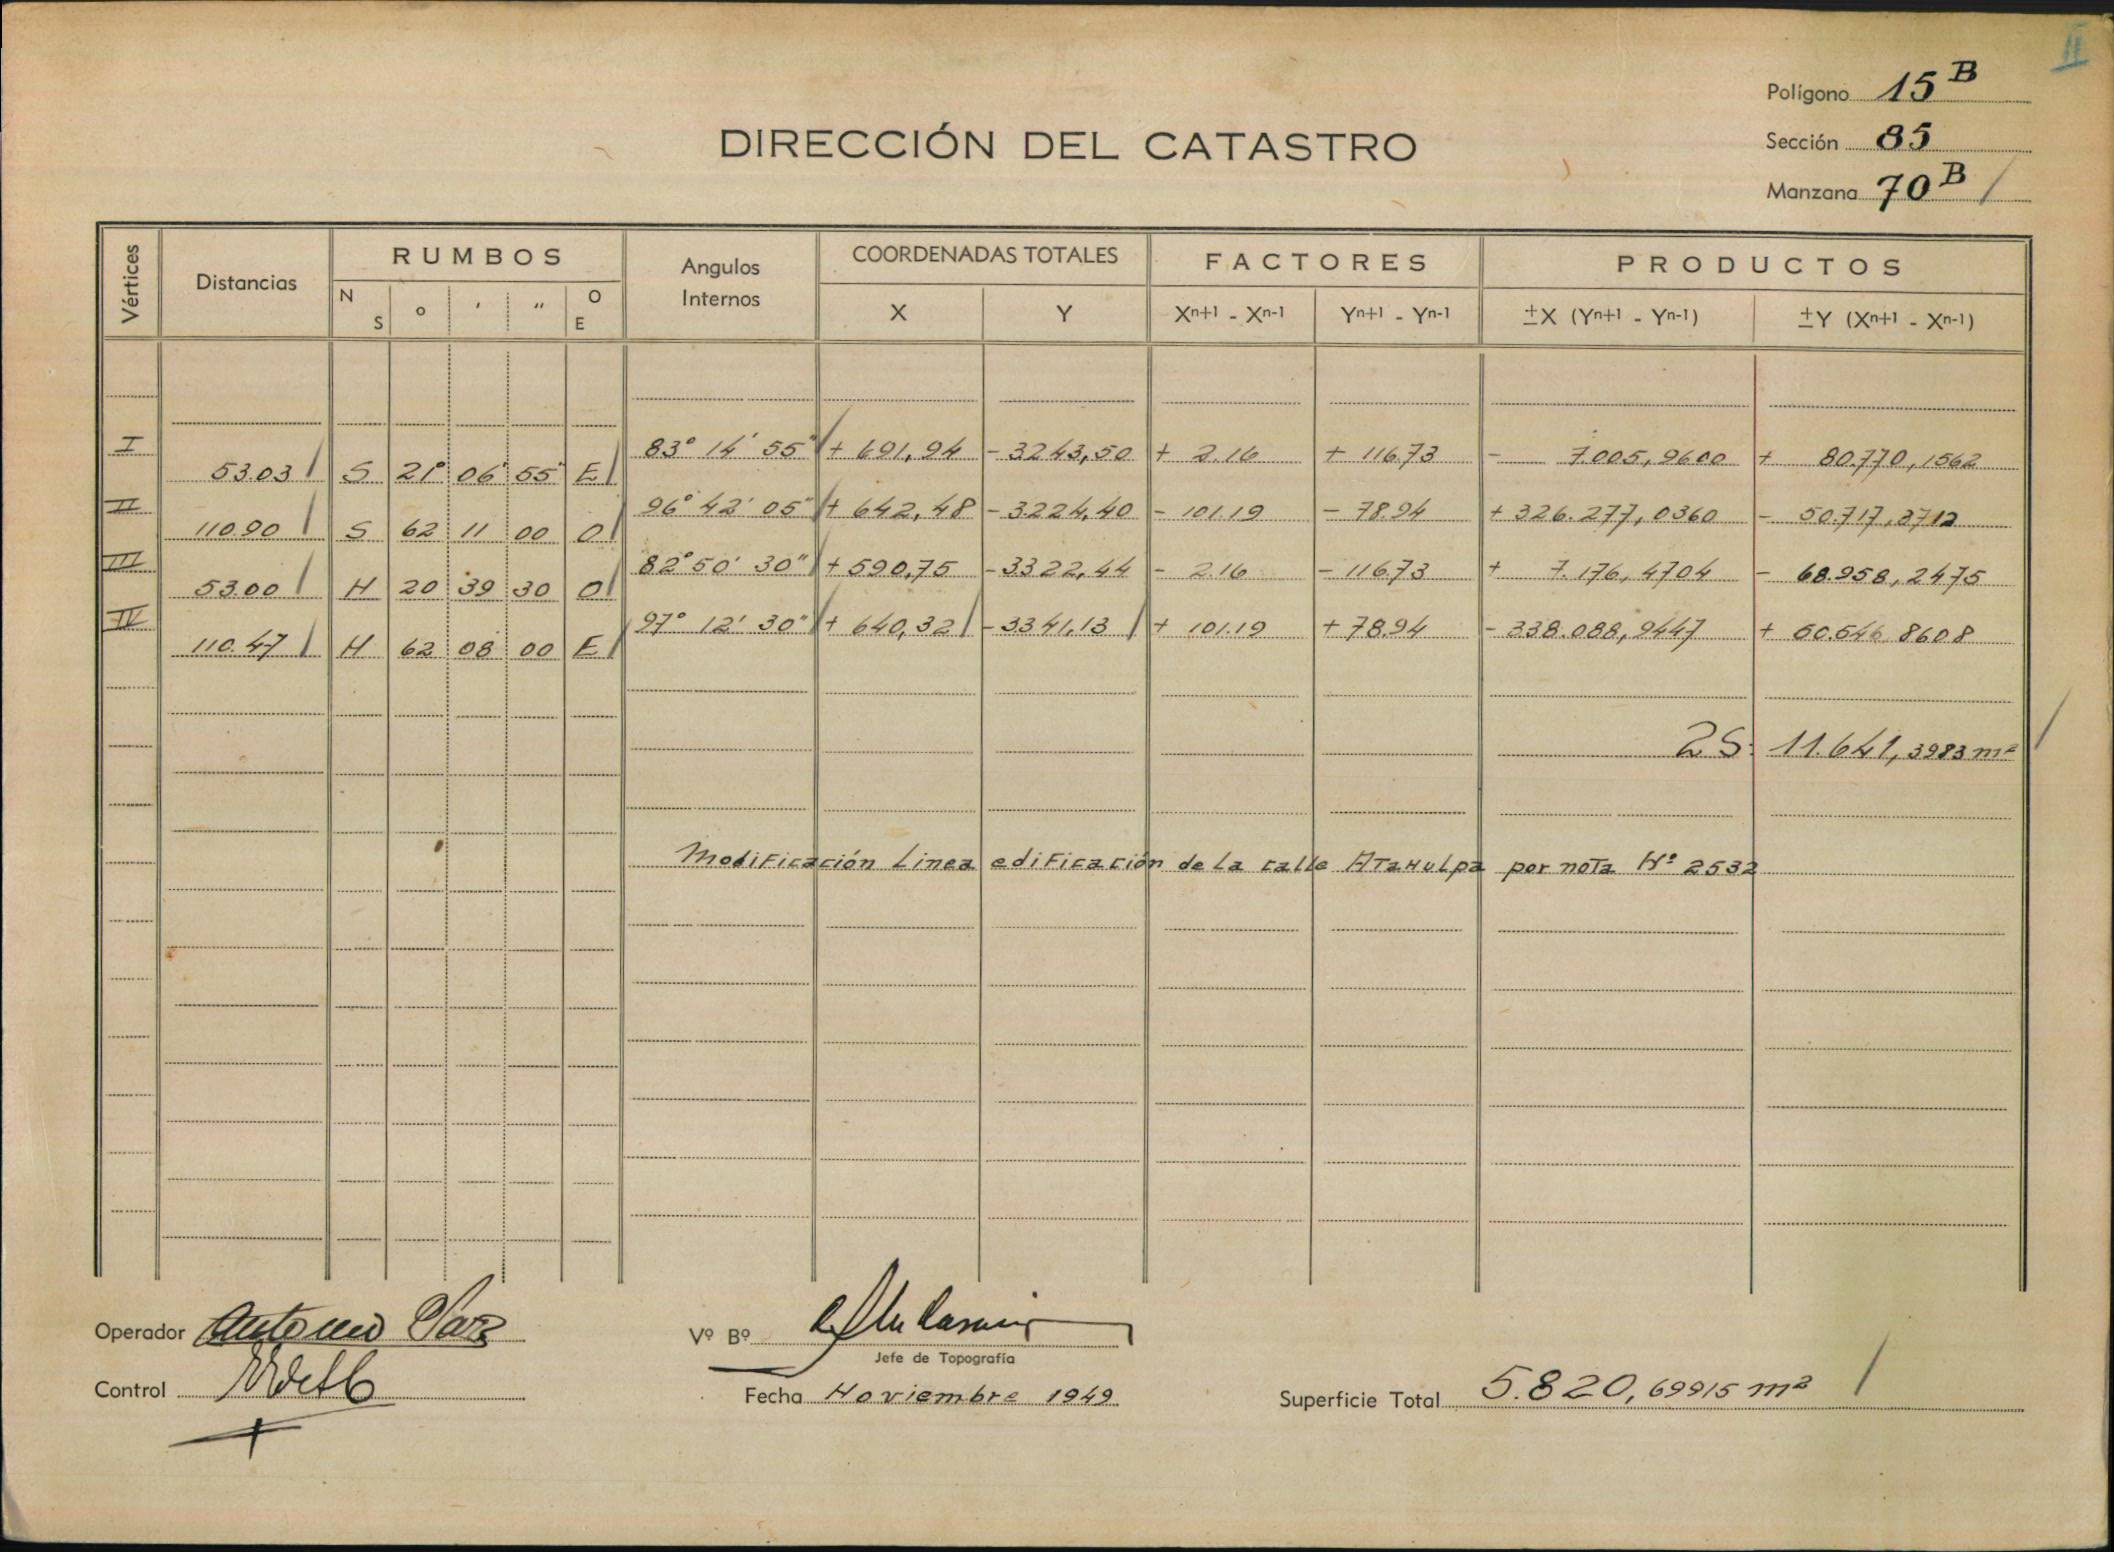 II
Polígono 15 B
DIRECCIÓN DEL CATASTRO
Sección 85
Manzana 70 B
Vértices Distancias RUMBOS Angulos Internos COORDENADAS TOTALES FACTORES PRODUCTOS
N S ° ' " O E X Y Xn+1 - Xn-1 Yn+1 - Yn-1 ±X (Yn+1 - Yn-1) ±Y (Xn+1 - Xn-1)
I 83° 14' 55" + 691,94 - 3243,50 + 2.16 + 116.73 - 7.005,9600 + 80.770,1562
53.03 S 21° 06' 55" E
II 96° 42' 05" + 642,48 - 3224,40 - 101.19 - 78.94 + 326.277,0360 - 50.717,3712
110.90 S 62 11 00 O
III 82° 50' 30" + 590,75 - 3322,44 - 2.16 - 116.73 + 7.176,4704 - 68.958,2475
53.00 N 20 39 30 O
IV 97° 12' 30" + 640,32 - 3341,13 + 101.19 + 78.94 - 338.088,9447 + 50.546 8608
110.47 N 62 08 00 E
2S: 11.641,3983 m²
Modificación Linea edificación de la calle Atahulpa por nota Nº 2532
Operador Antonio
Vº Bº
Jefe de Topografía
Control
Fecha Noviembre 1949
Superficie Total 5.820,69915 m²